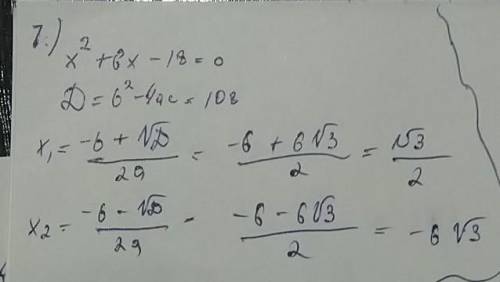 7.)
x² + 6x - 18 = 0
D = 6² - 4ac = 108
x₁ = (-6 + √D)/2a = (-6 + 6√3)/2 = √3/2
x₂ = (-6 - √D)/2a - (-6 - 6√3)/2 = -6√3